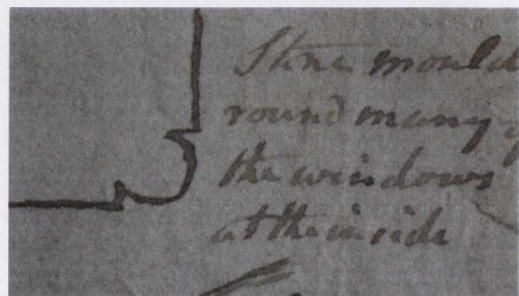 Stone mould
round many of
the windows
at the inside